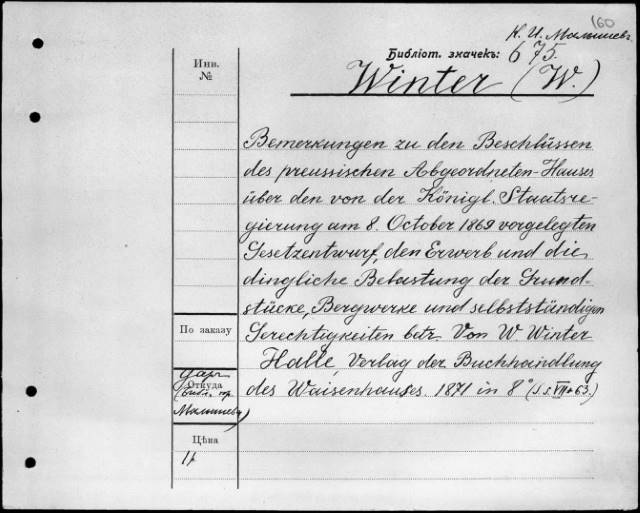 160
К. И. Малышев.
Библіот. значекъ: 675.
Winter (W.)
Инв.
№
Bemerkungen zu den Beschlüssen
des preussischen Abgeordneten-Hauses
über den von der Königl. Staatsre-
gierung am 8. October 1869 vorgelegten
Gesetzentwurf, den Erwerb und die
dingliche Belastung der Grund-
stücke, Bergwerke und selbstständigen
Gerechtigkeiten betr. Von W. Winter
Halle, Verlag der Buchhandlung
des Waisenhauses 1871 in 8° (S.s. VII+63.)
По заказу
Откуда
даръ
Малышева)
Цѣна